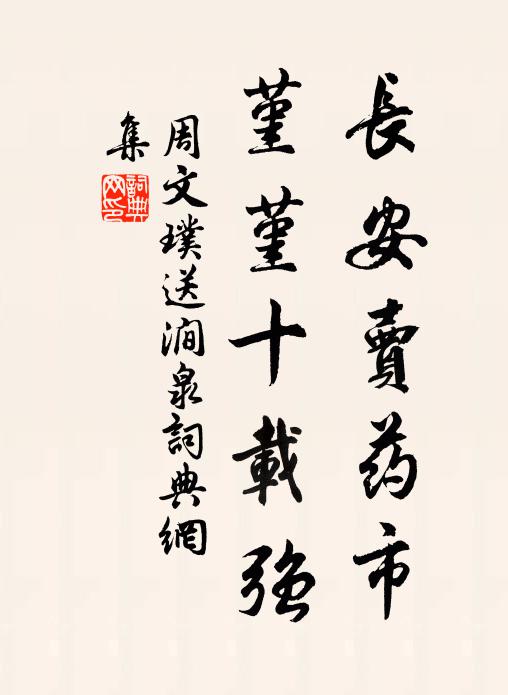 長安賣药市
堇堇十載強
周文璞送澗泉詞典網
集
詞典网印